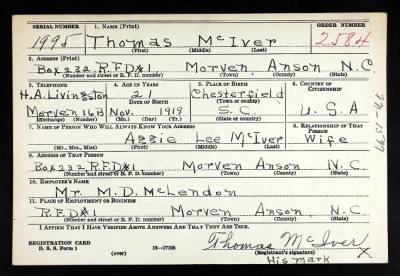 SERIAL NUMBER 1. NAME (Print) ORDER NUMBER
1995 Thomas McIver 2584
(First) (Middle) (Last)
2. ADDRESS (Print)
Box 232 R.F.D#1 Morven, Anson N.C.
(Number and street or R. F. D. number) (Town) (County) (State)
3. TELEPHONE 4. AGE IN YEARS 5. PLACE OF BIRTH 6. COUNTRY OF CITIZENSHIP
H.A. Livingston 21 Chesterfield
DATE OF BIRTH (Town or county)
Morven 16B Nov. 1919 S.C. U.S.A
(Exchange) (Number) (Mo.) (Day) (Yr.) (State or country)
7. NAME OF PERSON WHO WILL ALWAYS KNOW YOUR ADDRESS 8. RELATIONSHIP OF THAT PERSON
Aggie Lee McIver Wife
(Mr., Mrs., Miss) (First) (Middle) (Last)
9. ADDRESS OF THAT PERSON
Box 232 R.F.D#1 Morven Anson N.C.
(Number and street or R. F. D. number) (Town) (County) (State)
10. EMPLOYER'S NAME
Mr. M.D. McLendon
11. PLACE OF EMPLOYMENT OR BUSINESS
R.F.D#1 Morven Anson, N.C.
(Number and street or R. F. D. number) (Town) (County) (State)
I AFFIRM THAT I HAVE VERIFIED ABOVE ANSWERS AND THAT THEY ARE TRUE.
REGISTRATION CARD
D. S. S. Form 1 (over) 16—17105 Thomas McIver X
(Registrant's signature)
His mark